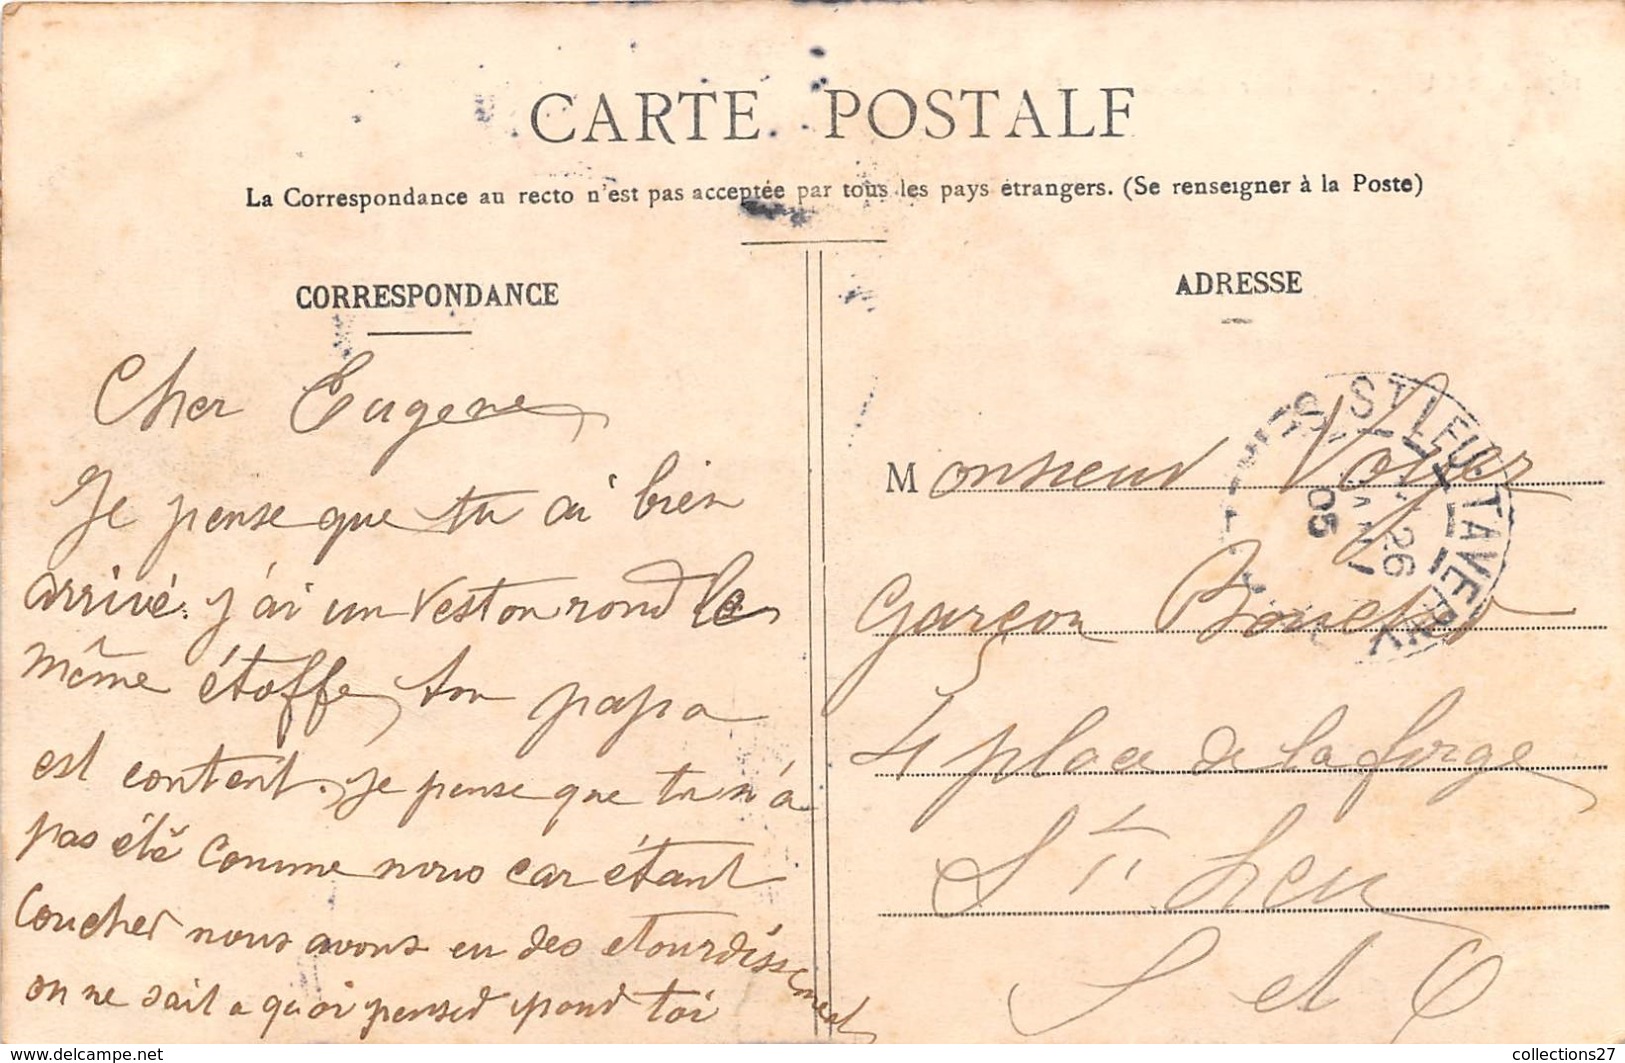 CARTE POSTALE
La Correspondance au recto n'est pas acceptée par tous les pays étrangers. (Se renseigner à la Poste)
CORRESPONDANCE
Cher Eugene
Je pense que tu ai bien
arrivé. j'ai un veston rond le
même étoffe, ton papa
est content. je pense que tu n'a
pas été comme nous car étant
Coucher nous avons eu des etourdissement
on ne sait a quoi penser pour toi
ADRESSE
Monsieur Voyer
garçon Boucher
4 place de la forge
St Leu
S et O
ST LEU-TAVERNY
26
JANV
05
collections27